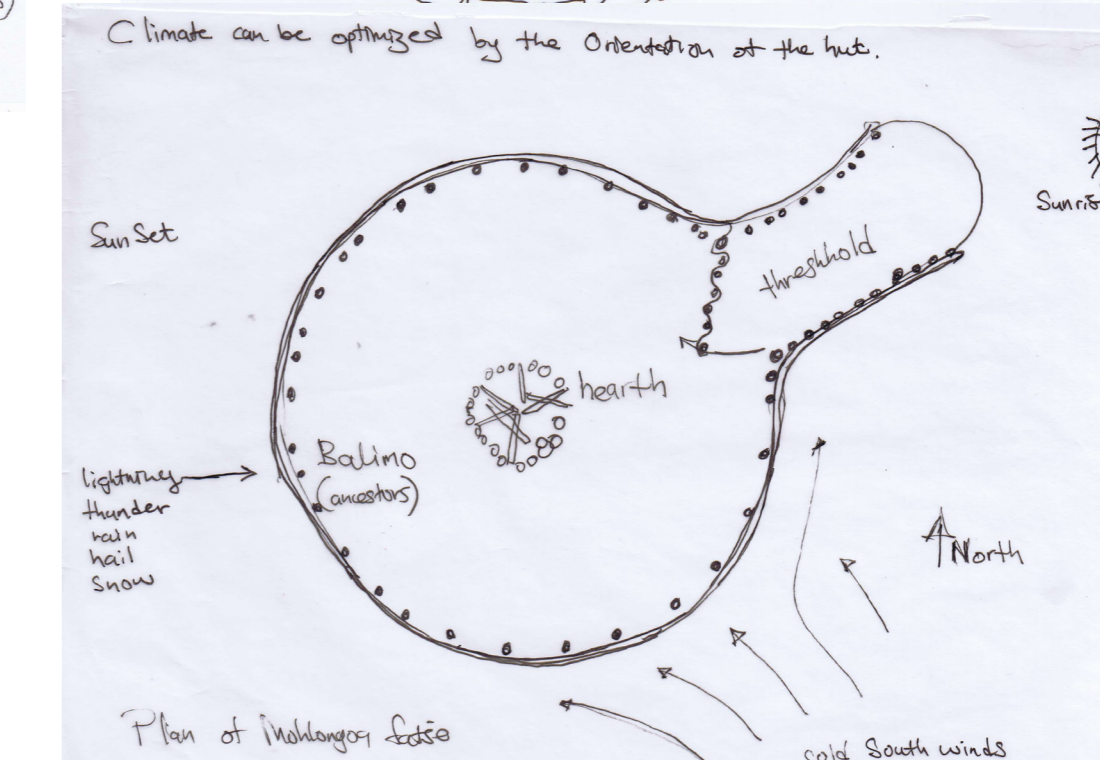 Climate can be optimized by the Orientation of the hut.
Sunset
Sunris
threshhold
hearth
Balimo
(ancestors)
lightning
thunder
rain
hail
snow
North
Plan of
cold South winds